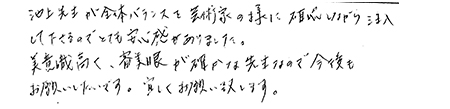 池上先生が全体バランスを芸術家の様に確認しながら注入
して下さるのでとても安心感がありました。
美意識高く、審美眼が確かな先生なので今後も
お願いしたいです。宜しくお願い致します。